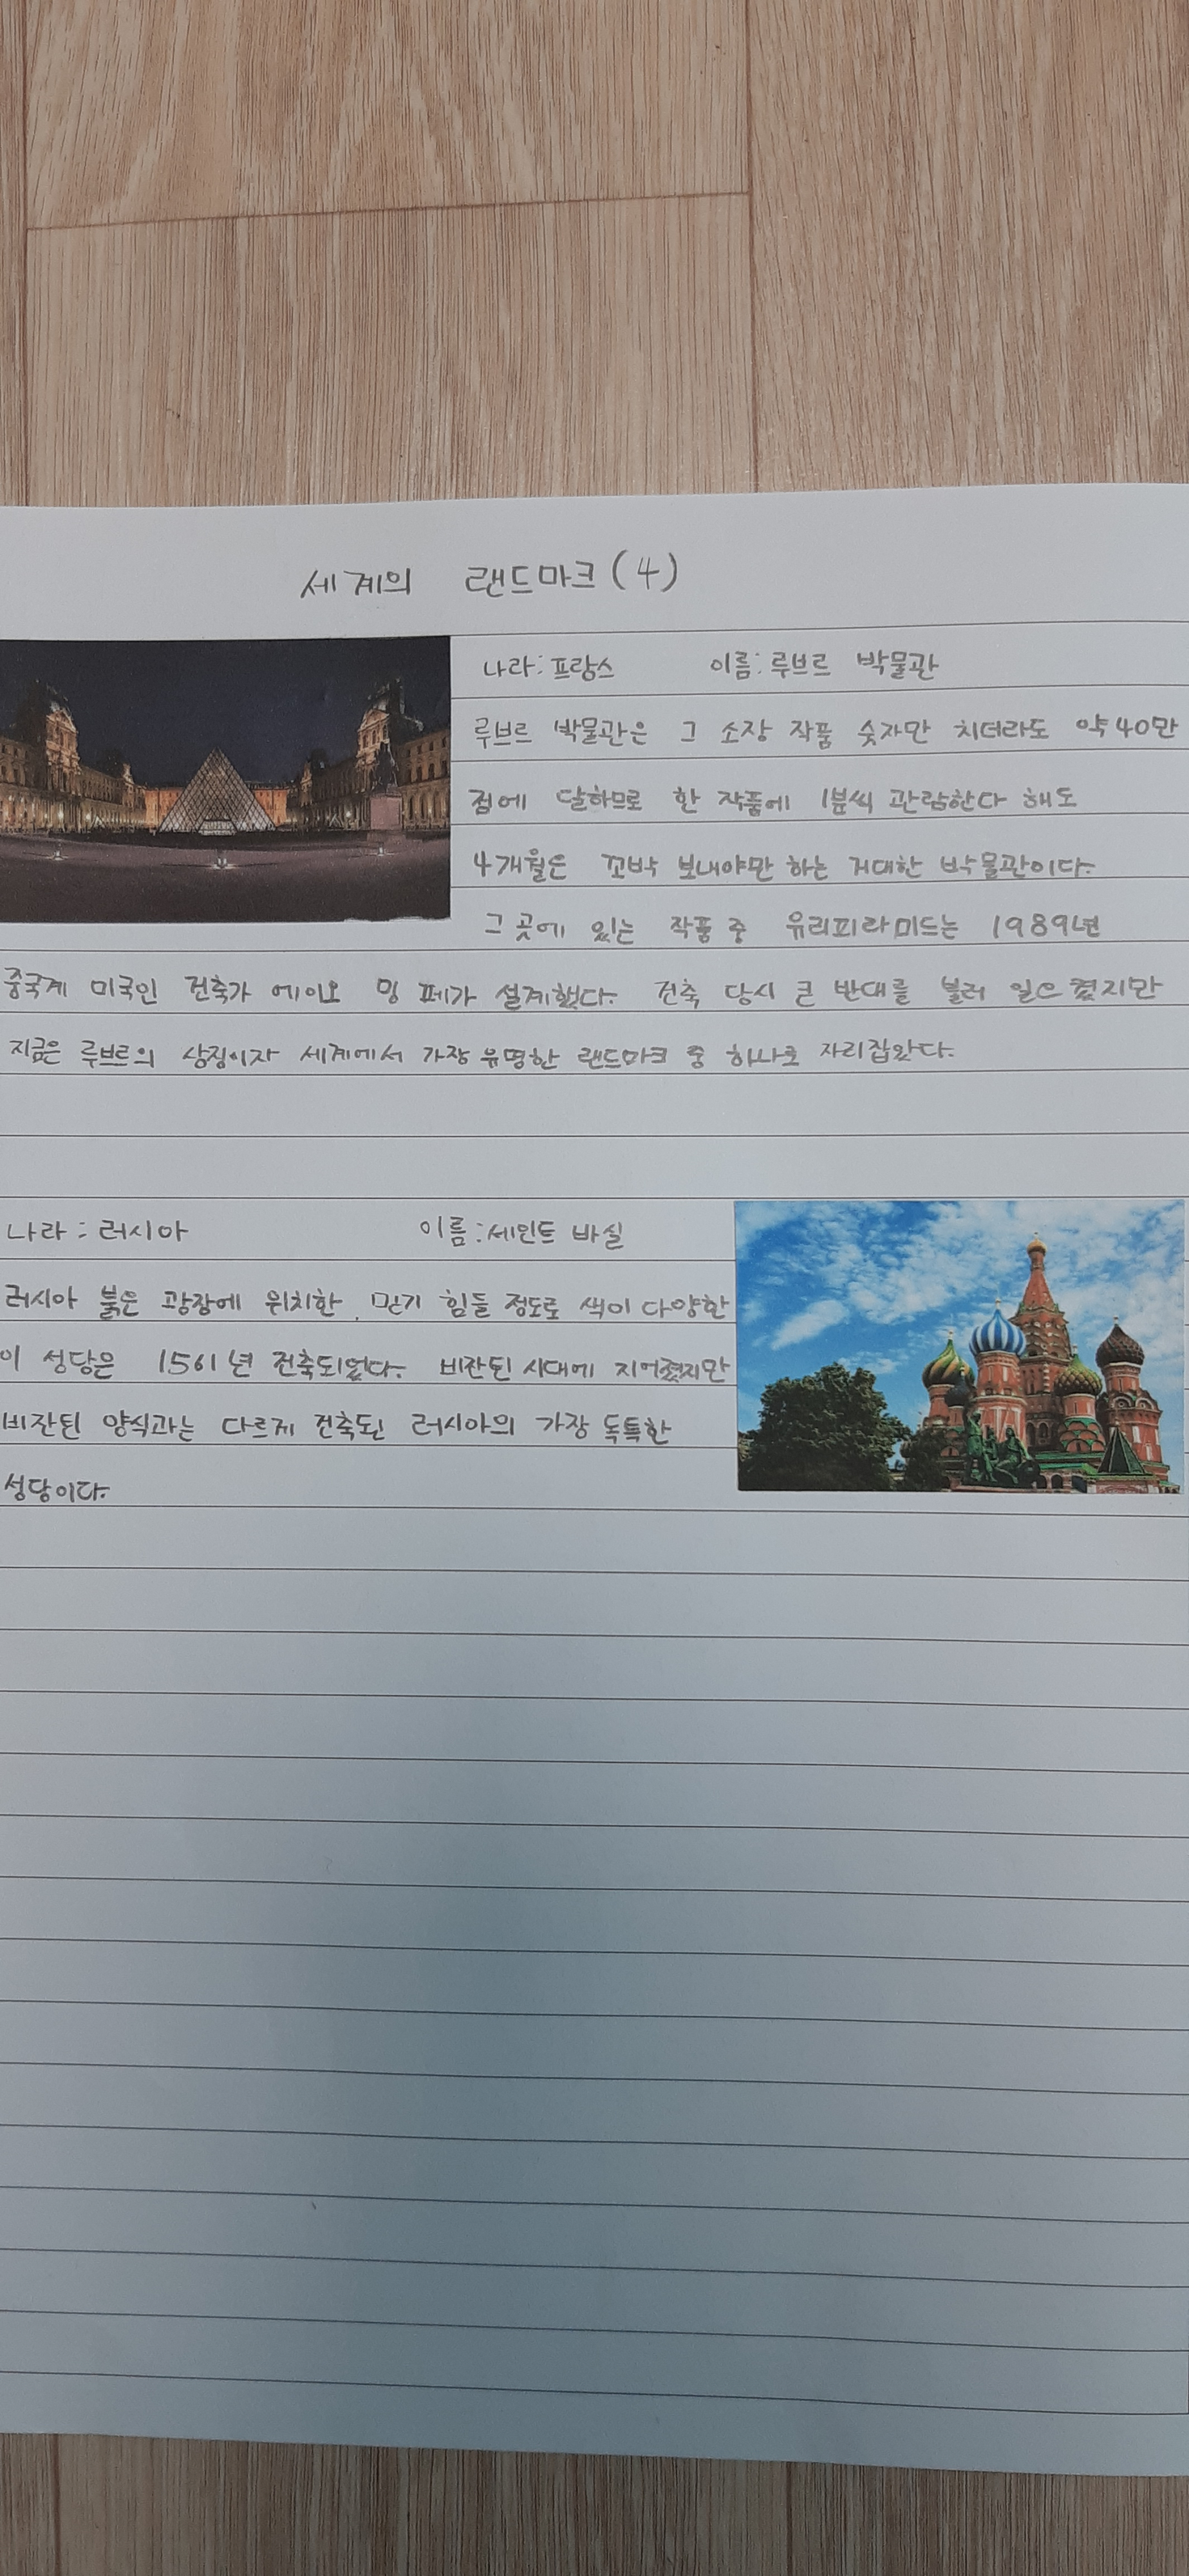 세계의 랜드마크(4)
나라:프랑스 이름:루브르 박물관
루브르 박물관은 그 소장 작품 숫자만 치더라도 약 40만
점에 달하므로 한 작품에 1분씩 관람한다 해도
4개월은 꼬박 보내야만 하는 거대한 박물관이다.
그 곳에 있는 작품 중 유리피라미드는 1989년
중국계 미국인 건축가 에이오 밍 페가 설계했다. 건축 당시 큰 반대를 불러 일으켰지만
지금은 루브르의 상징이자 세계에서 가장 유명한 랜드마크 중 하나로 자리잡았다.
나라: 러시아 이름:세인트 바실
러시아 붉은 광장에 위치한, 믿기 힘들 정도로 색이 다양한
이 성당은 1561년 건축되었다. 비잔틴 시대에 지어졌지만
비잔틴 양식과는 다르게 건축된 러시아의 가장 독특한
성당이다.